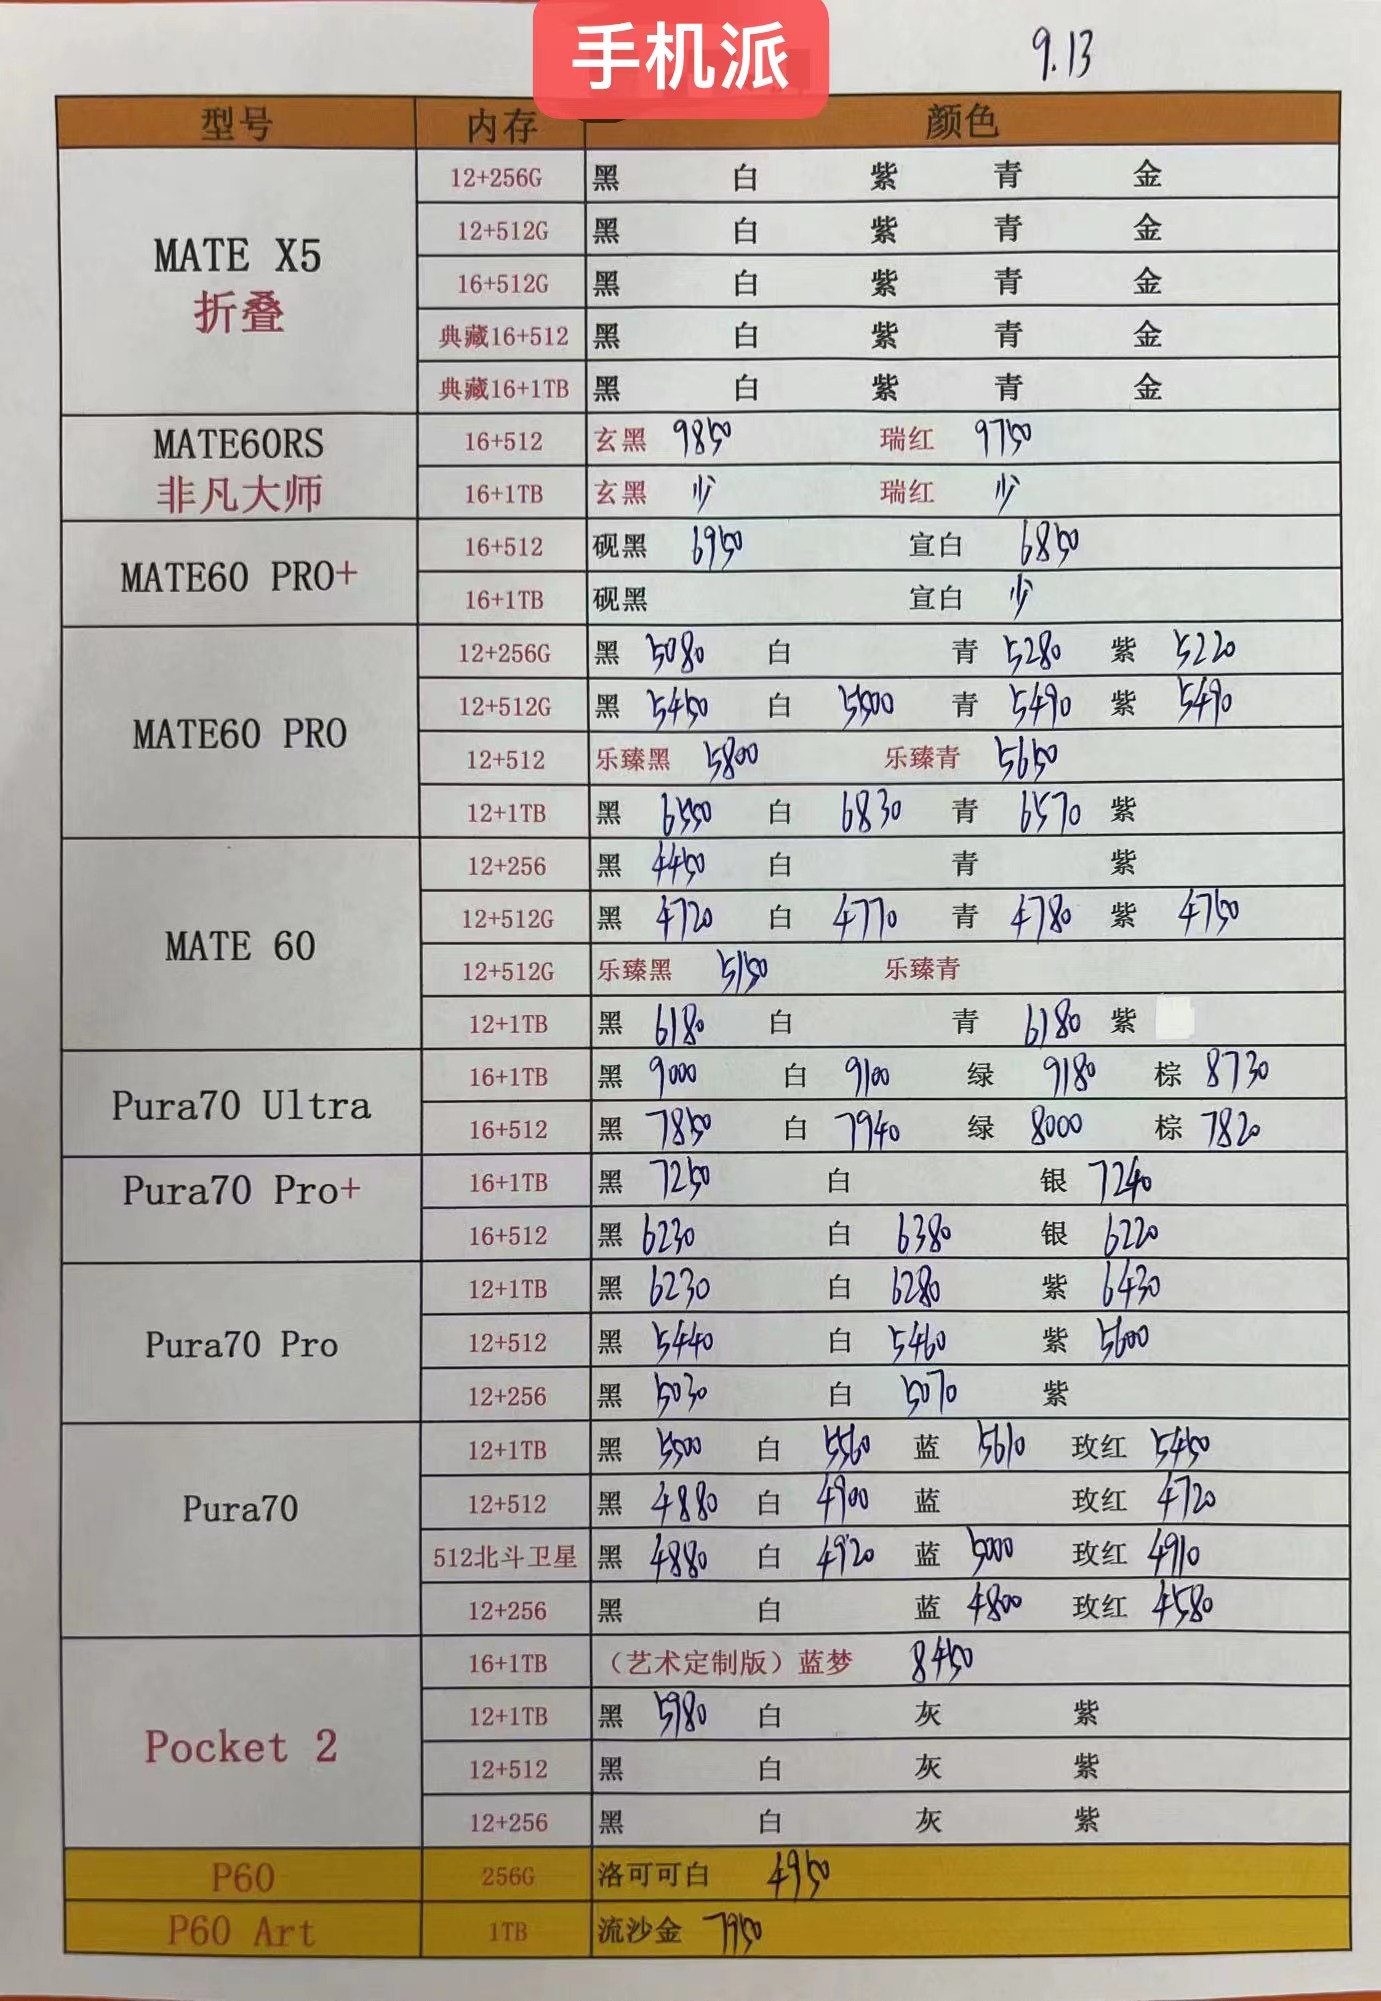 手机派
9.13
型号 内存 颜色
MATE X5 折叠
12+256G 黑 白 紫 青 金
12+512G 黑 白 紫 青 金
16+512G 黑 白 紫 青 金
典藏16+512 黑 白 紫 青 金
典藏16+1TB 黑 白 紫 青 金
MATE60RS 非凡大师
16+512 玄黑 9850 瑞红 9750
16+1TB 玄黑 少 瑞红 少
MATE60 PRO+
16+512 砚黑 6950 宣白 6850
16+1TB 砚黑 宣白 少
MATE60 PRO
12+256G 黑 5080 白 青 5280 紫 5220
12+512G 黑 5450 白 5500 青 5490 紫 5490
12+512 乐臻黑 5800 乐臻青 5650
12+1TB 黑 6550 白 6830 青 6570 紫
MATE 60
12+256 黑 4450 白 青 紫
12+512G 黑 4720 白 4770 青 4780 紫 4750
12+512G 乐臻黑 5150 乐臻青
12+1TB 黑 6180 白 青 6180 紫
Pura70 Ultra
16+1TB 黑 9000 白 9100 绿 9180 棕 8730
16+512 黑 7850 白 7940 绿 8000 棕 7820
Pura70 Pro+
16+1TB 黑 7250 白 银 7240
16+512 黑 6230 白 6380 银 6220
Pura70 Pro
12+1TB 黑 6230 白 6280 紫 6430
12+512 黑 5440 白 5460 紫 5600
12+256 黑 5030 白 5070 紫
Pura70
12+1TB 黑 5500 白 5560 蓝 5610 玫红 5450
12+512 黑 4880 白 4900 蓝 玫红 4720
512北斗卫星 黑 4880 白 4920 蓝 5000 玫红 4910
12+256 黑 白 蓝 4800 玫红 4580
Pocket 2
16+1TB （艺术定制版）蓝梦 8450
12+1TB 黑 5980 白 灰 紫
12+512 黑 白 灰 紫
12+256 黑 白 灰 紫
P60 256G 洛可可白 4950
P60 Art 1TB 流沙金 7950